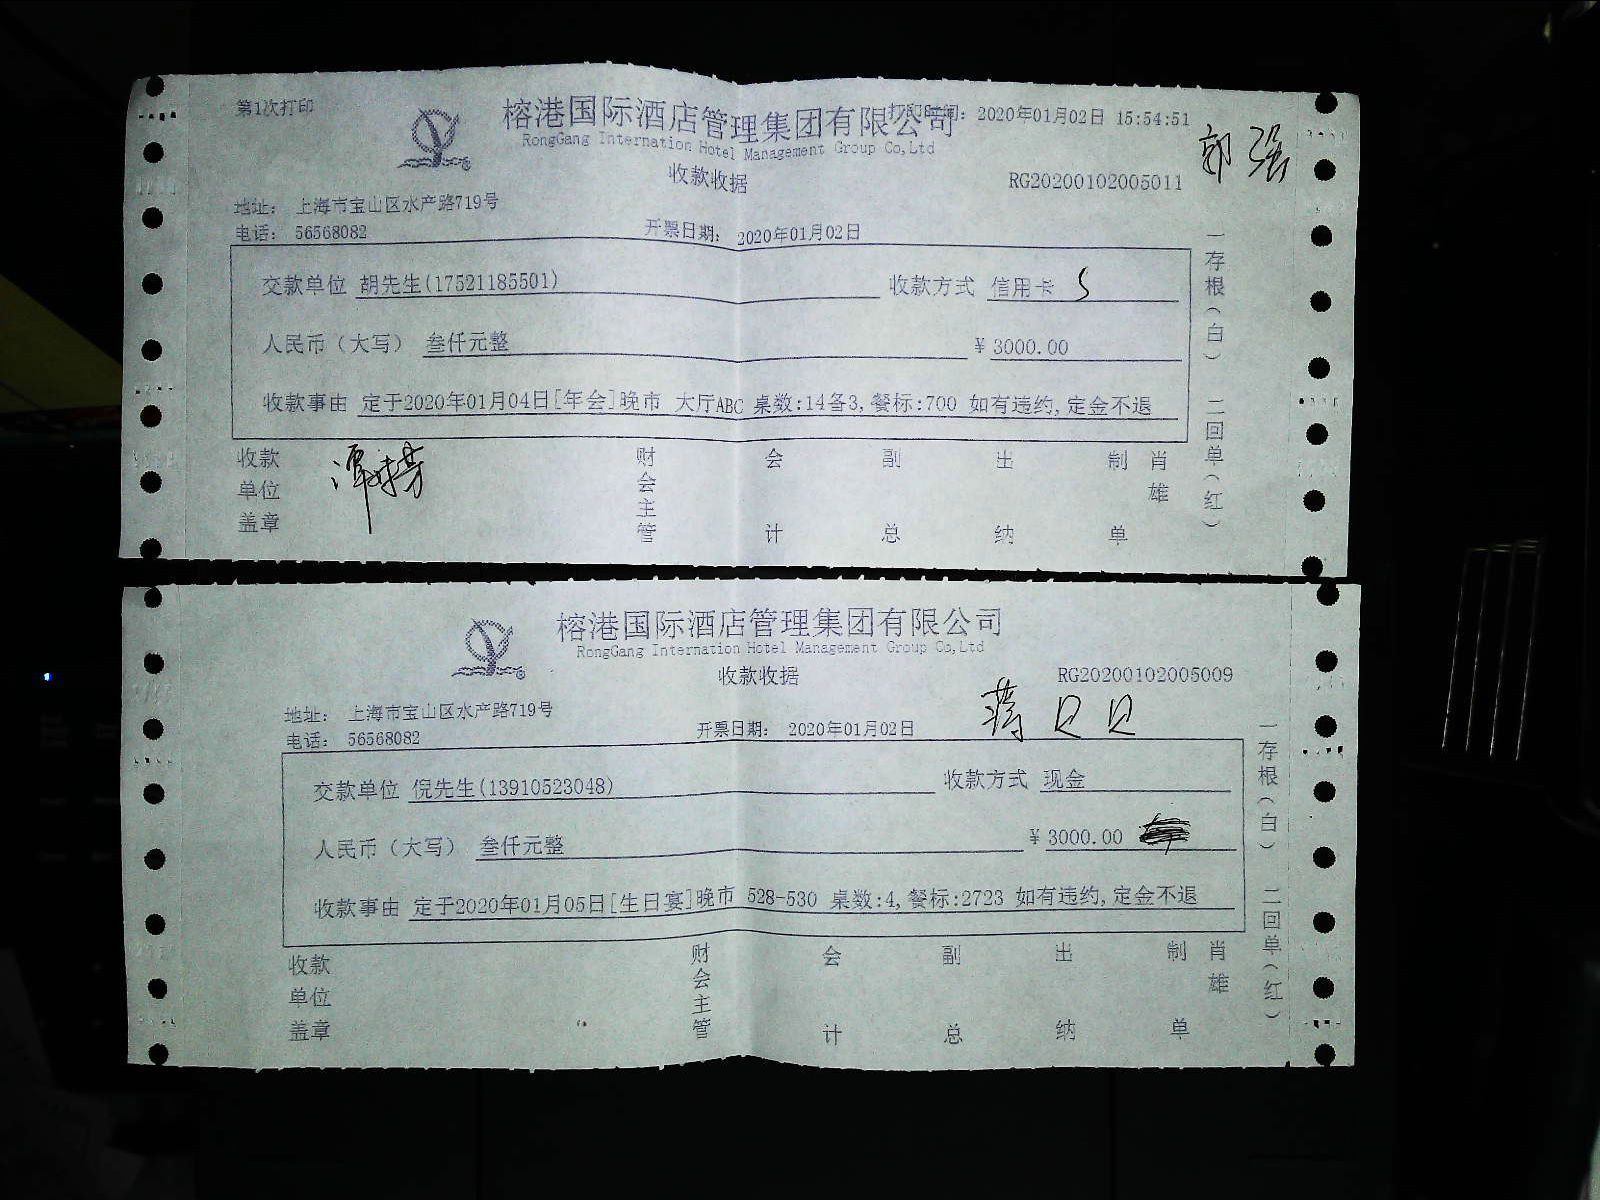 第1次打印
榕港国际酒店管理集团有限公司
打印时间: 2020年01月02日 15:54:51
RongGang Internation Hotel Management Group Co,Ltd
郭强
收款收据
RG20200102005011
地址: 上海市宝山区水产路719号
电话: 56568082
开票日期: 2020年01月02日
交款单位 胡先生(17521185501) 收款方式 信用卡 S
人民币(大写) 叁仟元整 ¥ 3000.00
收款事由 定于2020年01月04日[年会]晚市 大厅ABC 桌数:14备3,餐标:700 如有违约,定金不退
一存根(白) 二回单(红)
收款单位盖章
财会主管 会计 副总 出纳 制单 肖雄
榕港国际酒店管理集团有限公司
RongGang Internation Hotel Management Group Co,Ltd
收款收据
RG20200102005009
蒋贝贝
地址: 上海市宝山区水产路719号
电话: 56568082
开票日期: 2020年01月02日
交款单位 倪先生(13910523048) 收款方式 现金
人民币(大写) 叁仟元整 ¥ 3000.00
收款事由 定于2020年01月05日[生日宴]晚市 528-530 桌数:4,餐标:2723 如有违约,定金不退
一存根(白) 二回单(红)
收款单位盖章
财会主管 会计 副总 出纳 制单 肖雄